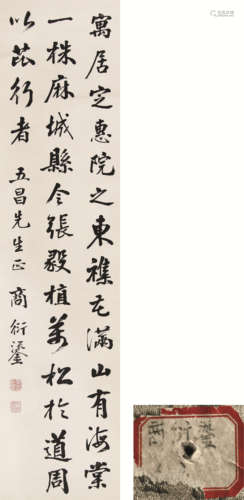 寓居定惠院之東襍花滿山有海棠
一株麻城縣令張毅植萬松於道周
以芘行者 五昌先生正 商衍鎏
商衍鎏